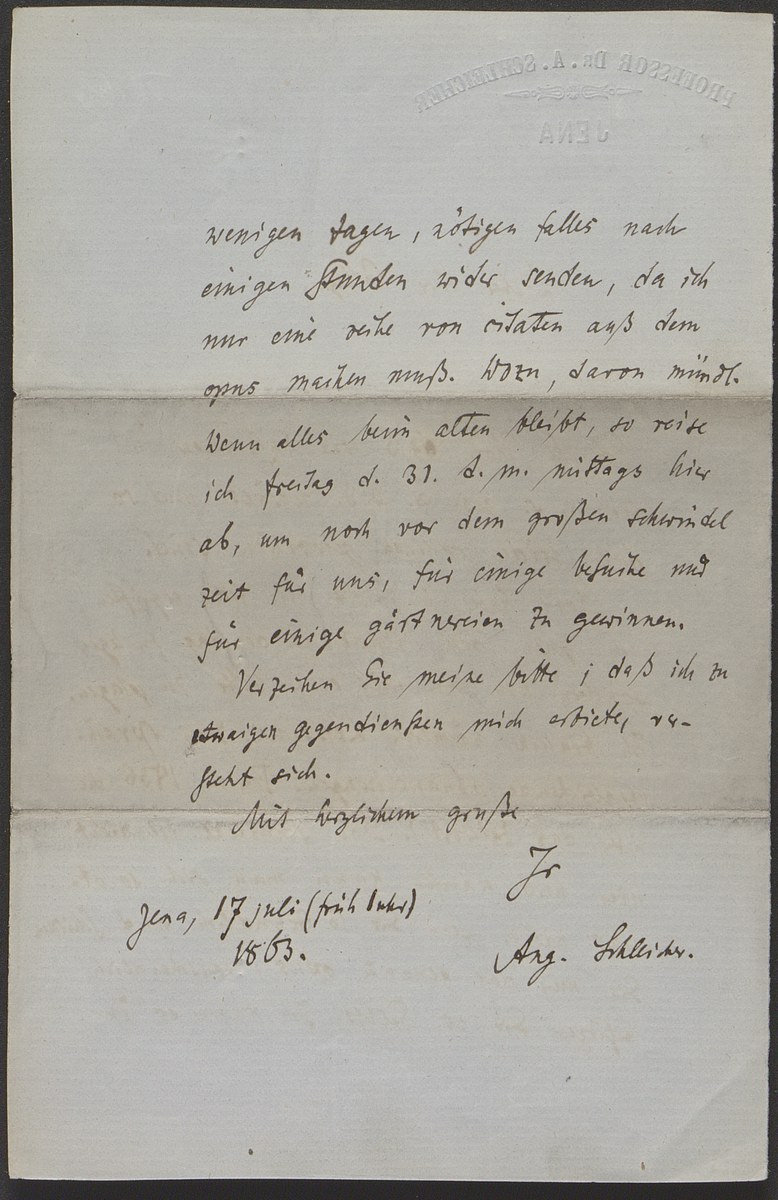 PROFESSOR DR. A. SCHLEICHER
JENA
wenigen tagen, nötigen falles nach
einigen stunden wider senden, da ich
nur eine reihe von citaten auß dem
opus machen muß. Wozu, davon mündl.
Wenn alles beim alten bleibt, so reise
ich freitag d. 31. d. m. mittags hier
ab, um noch vor dem großen schwindel
zeit für uns, für einige besuche und
für einige gärtnereien zu gewinnen.
Verzeihen Sie meine bitte; daß ich zu
etwaigen gegendiensten mich erbiete, ver-
steht sich.
Mit herzlichem gruße
Ir
Jena, 17 juli (früh 1 uhr)
1863.
Aug. Schleicher.